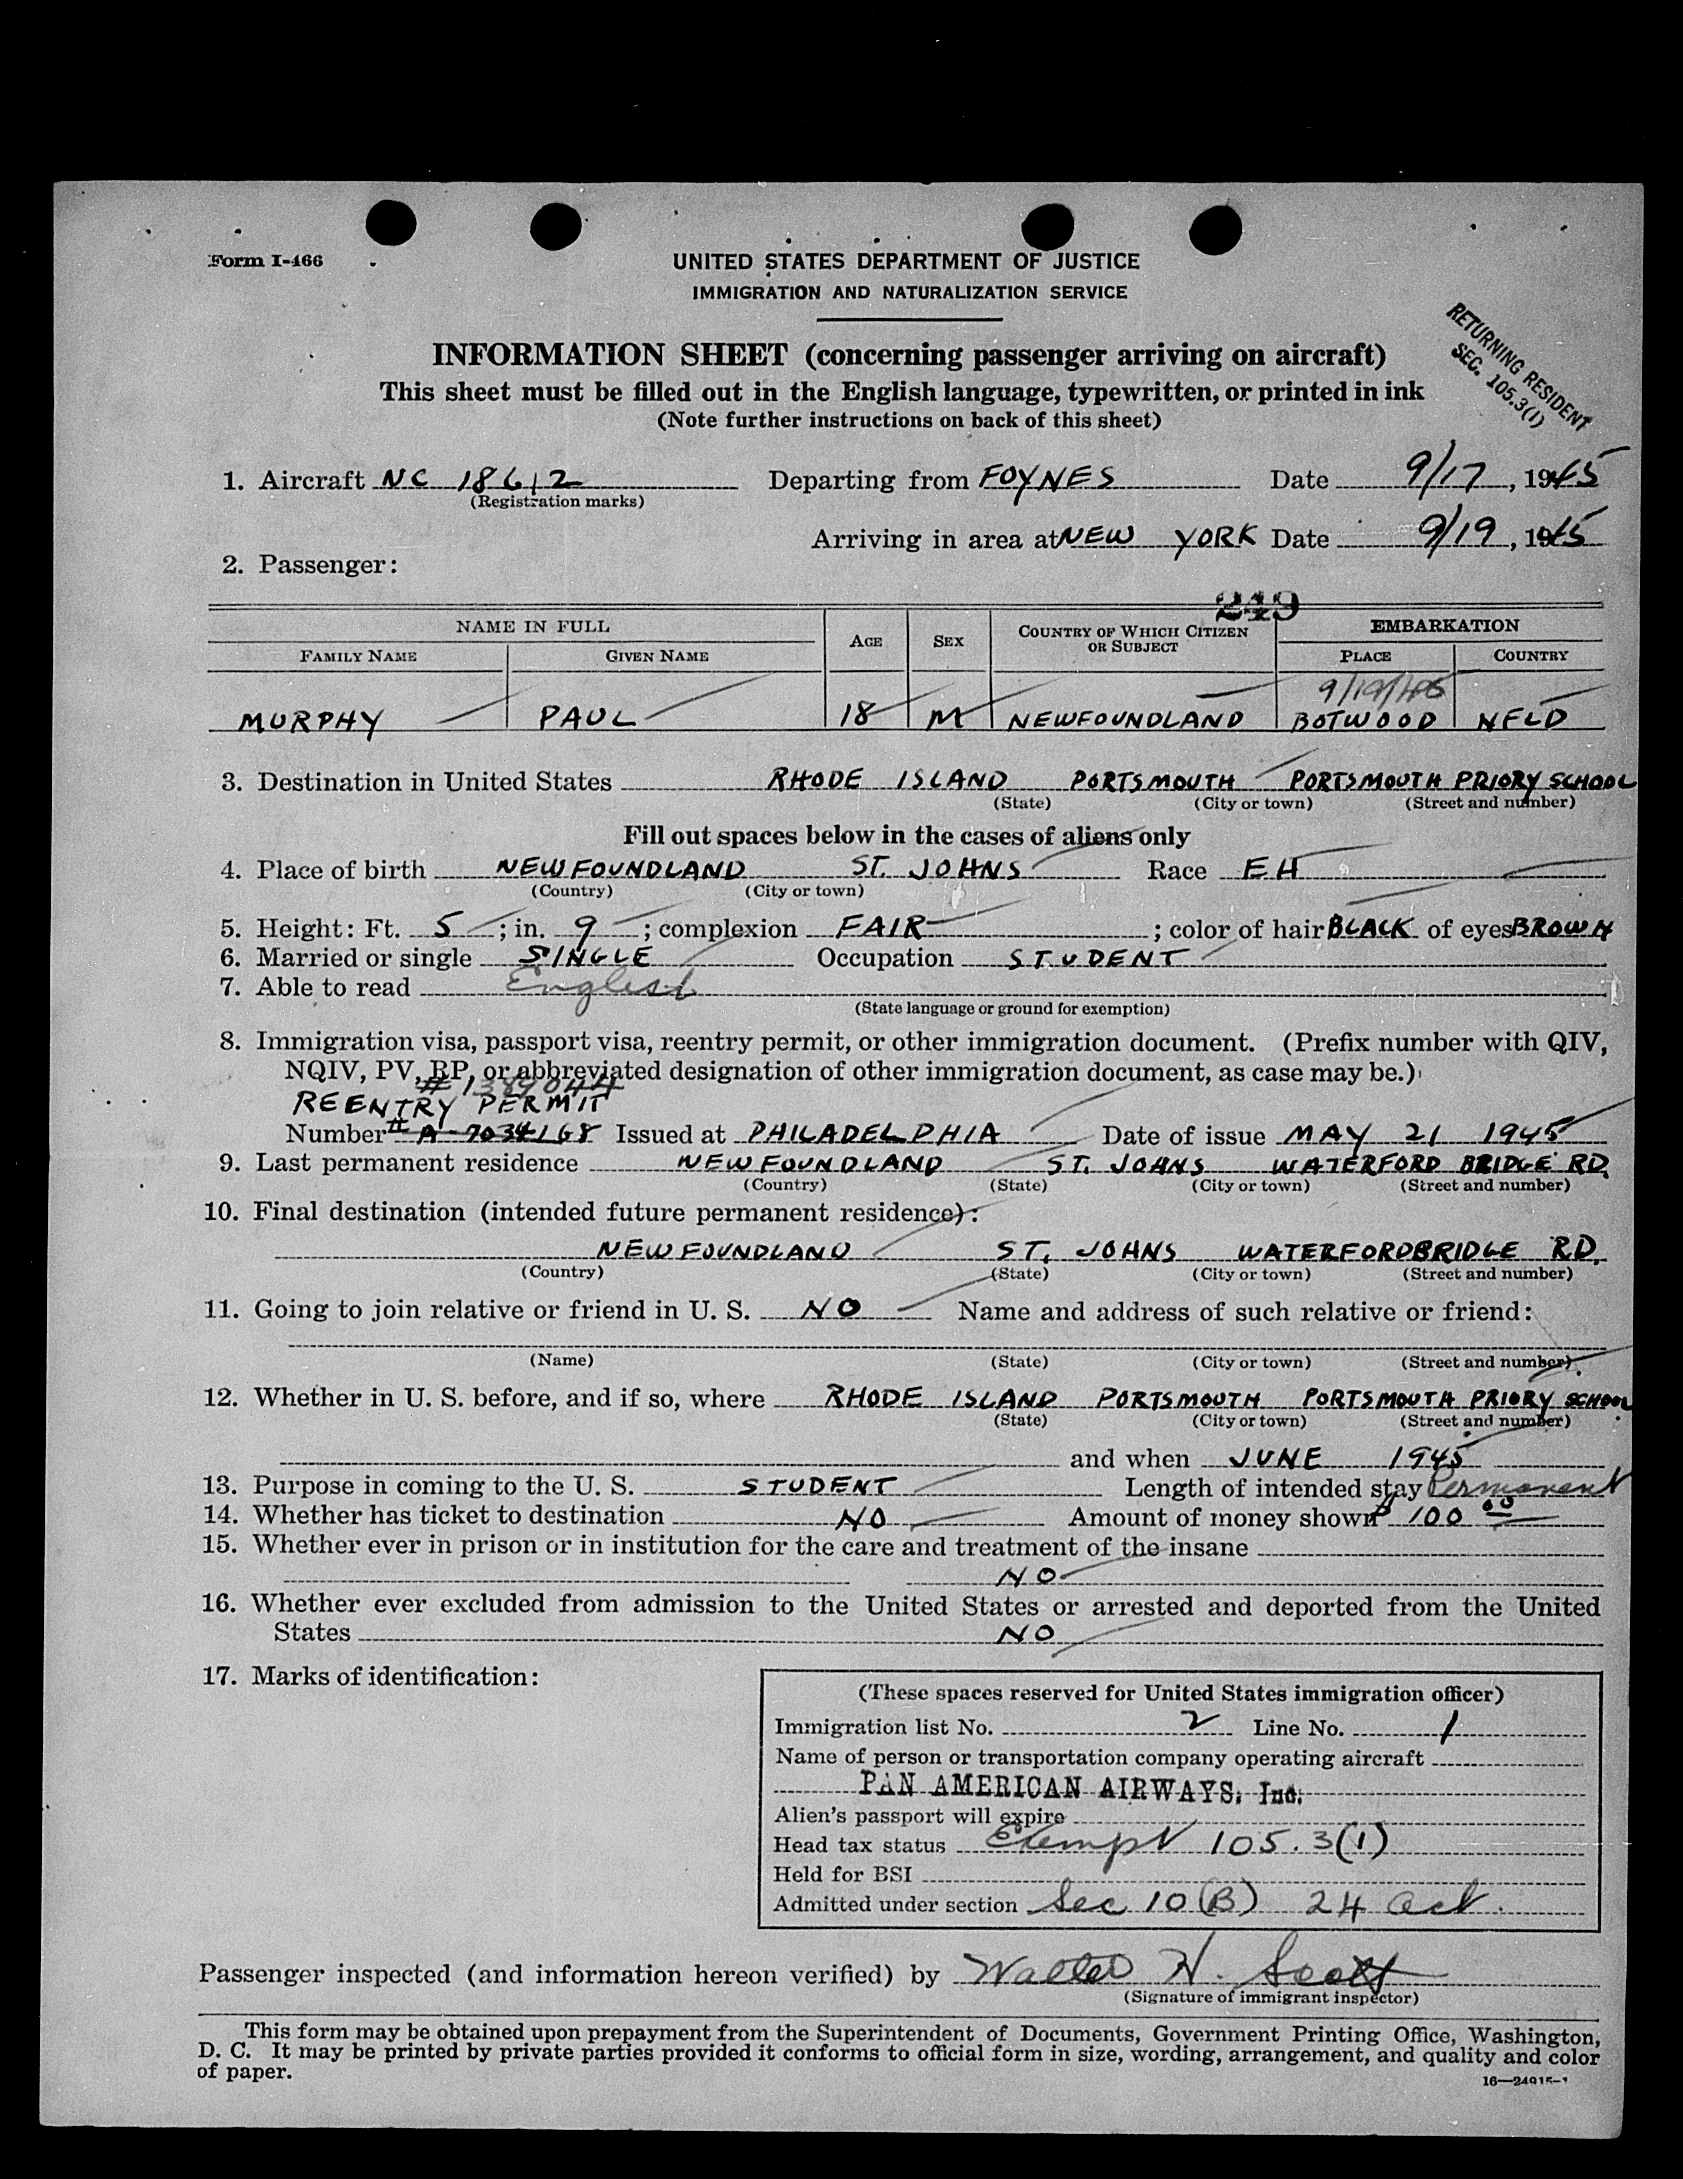 Form I-466
UNITED STATES DEPARTMENT OF JUSTICE
IMMIGRATION AND NATURALIZATION SERVICE
RETURNING RESIDENT
SEC. 105.3(1)
INFORMATION SHEET (concerning passenger arriving on aircraft)
This sheet must be filled out in the English language, typewritten, or printed in ink
(Note further instructions on back of this sheet)
1. Aircraft NC 18612 Departing from FOYNES Date 9/17, 1945
(Registration marks)
Arriving in area at NEW YORK Date 9/19, 1945
2. Passenger:
249
NAME IN FULL AGE SEX COUNTRY OF WHICH CITIZEN OR SUBJECT EMBARKATION
FAMILY NAME GIVEN NAME PLACE COUNTRY
9/19/45
MURPHY PAUL 18 M NEWFOUNDLAND BOTWOOD NFLD
3. Destination in United States RHODE ISLAND PORTSMOUTH PORTSMOUTH PRIORY SCHOOL
(State) (City or town) (Street and number)
Fill out spaces below in the cases of aliens only
4. Place of birth NEWFOUNDLAND ST. JOHNS Race EH
(Country) (City or town)
5. Height: Ft. 5; in. 9; complexion FAIR; color of hair BLACK of eyes BROWN
6. Married or single SINGLE Occupation STUDENT
7. Able to read English
(State language or ground for exemption)
8. Immigration visa, passport visa, reentry permit, or other immigration document. (Prefix number with QIV,
NQIV, PV, RP, or abbreviated designation of other immigration document, as case may be.)
# 1389044
REENTRY PERMIT
Number # A-7034168 Issued at PHILADELPHIA Date of issue MAY 21 1945
9. Last permanent residence NEWFOUNDLAND ST. JOHNS WATERFORD BRIDGE RD.
(Country) (State) (City or town) (Street and number)
10. Final destination (intended future permanent residence):
NEWFOUNDLAND ST. JOHNS WATERFORDBRIDGE RD.
(Country) (State) (City or town) (Street and number)
11. Going to join relative or friend in U. S. NO Name and address of such relative or friend:
(Name) (State) (City or town) (Street and number)
12. Whether in U. S. before, and if so, where RHODE ISLAND PORTSMOUTH PORTSMOUTH PRIORY SCHOOL
(State) (City or town) (Street and number)
and when JUNE 1945
13. Purpose in coming to the U. S. STUDENT Length of intended stay Permanent
14. Whether has ticket to destination NO Amount of money shown $ 100 00
15. Whether ever in prison or in institution for the care and treatment of the insane
NO
16. Whether ever excluded from admission to the United States or arrested and deported from the United
States NO
17. Marks of identification:
(These spaces reserved for United States immigration officer)
Immigration list No. 2 Line No. 1
Name of person or transportation company operating aircraft
PAN AMERICAN AIRWAYS, Inc.
Alien's passport will expire
Head tax status Exempt 105.3(1)
Held for BSI
Admitted under section Sec 10(B) 24 act.
Passenger inspected (and information hereon verified) by Walter H. Scott
(Signature of immigrant inspector)
This form may be obtained upon prepayment from the Superintendent of Documents, Government Printing Office, Washington,
D. C. It may be printed by private parties provided it conforms to official form in size, wording, arrangement, and quality and color
of paper.
16—24915-1